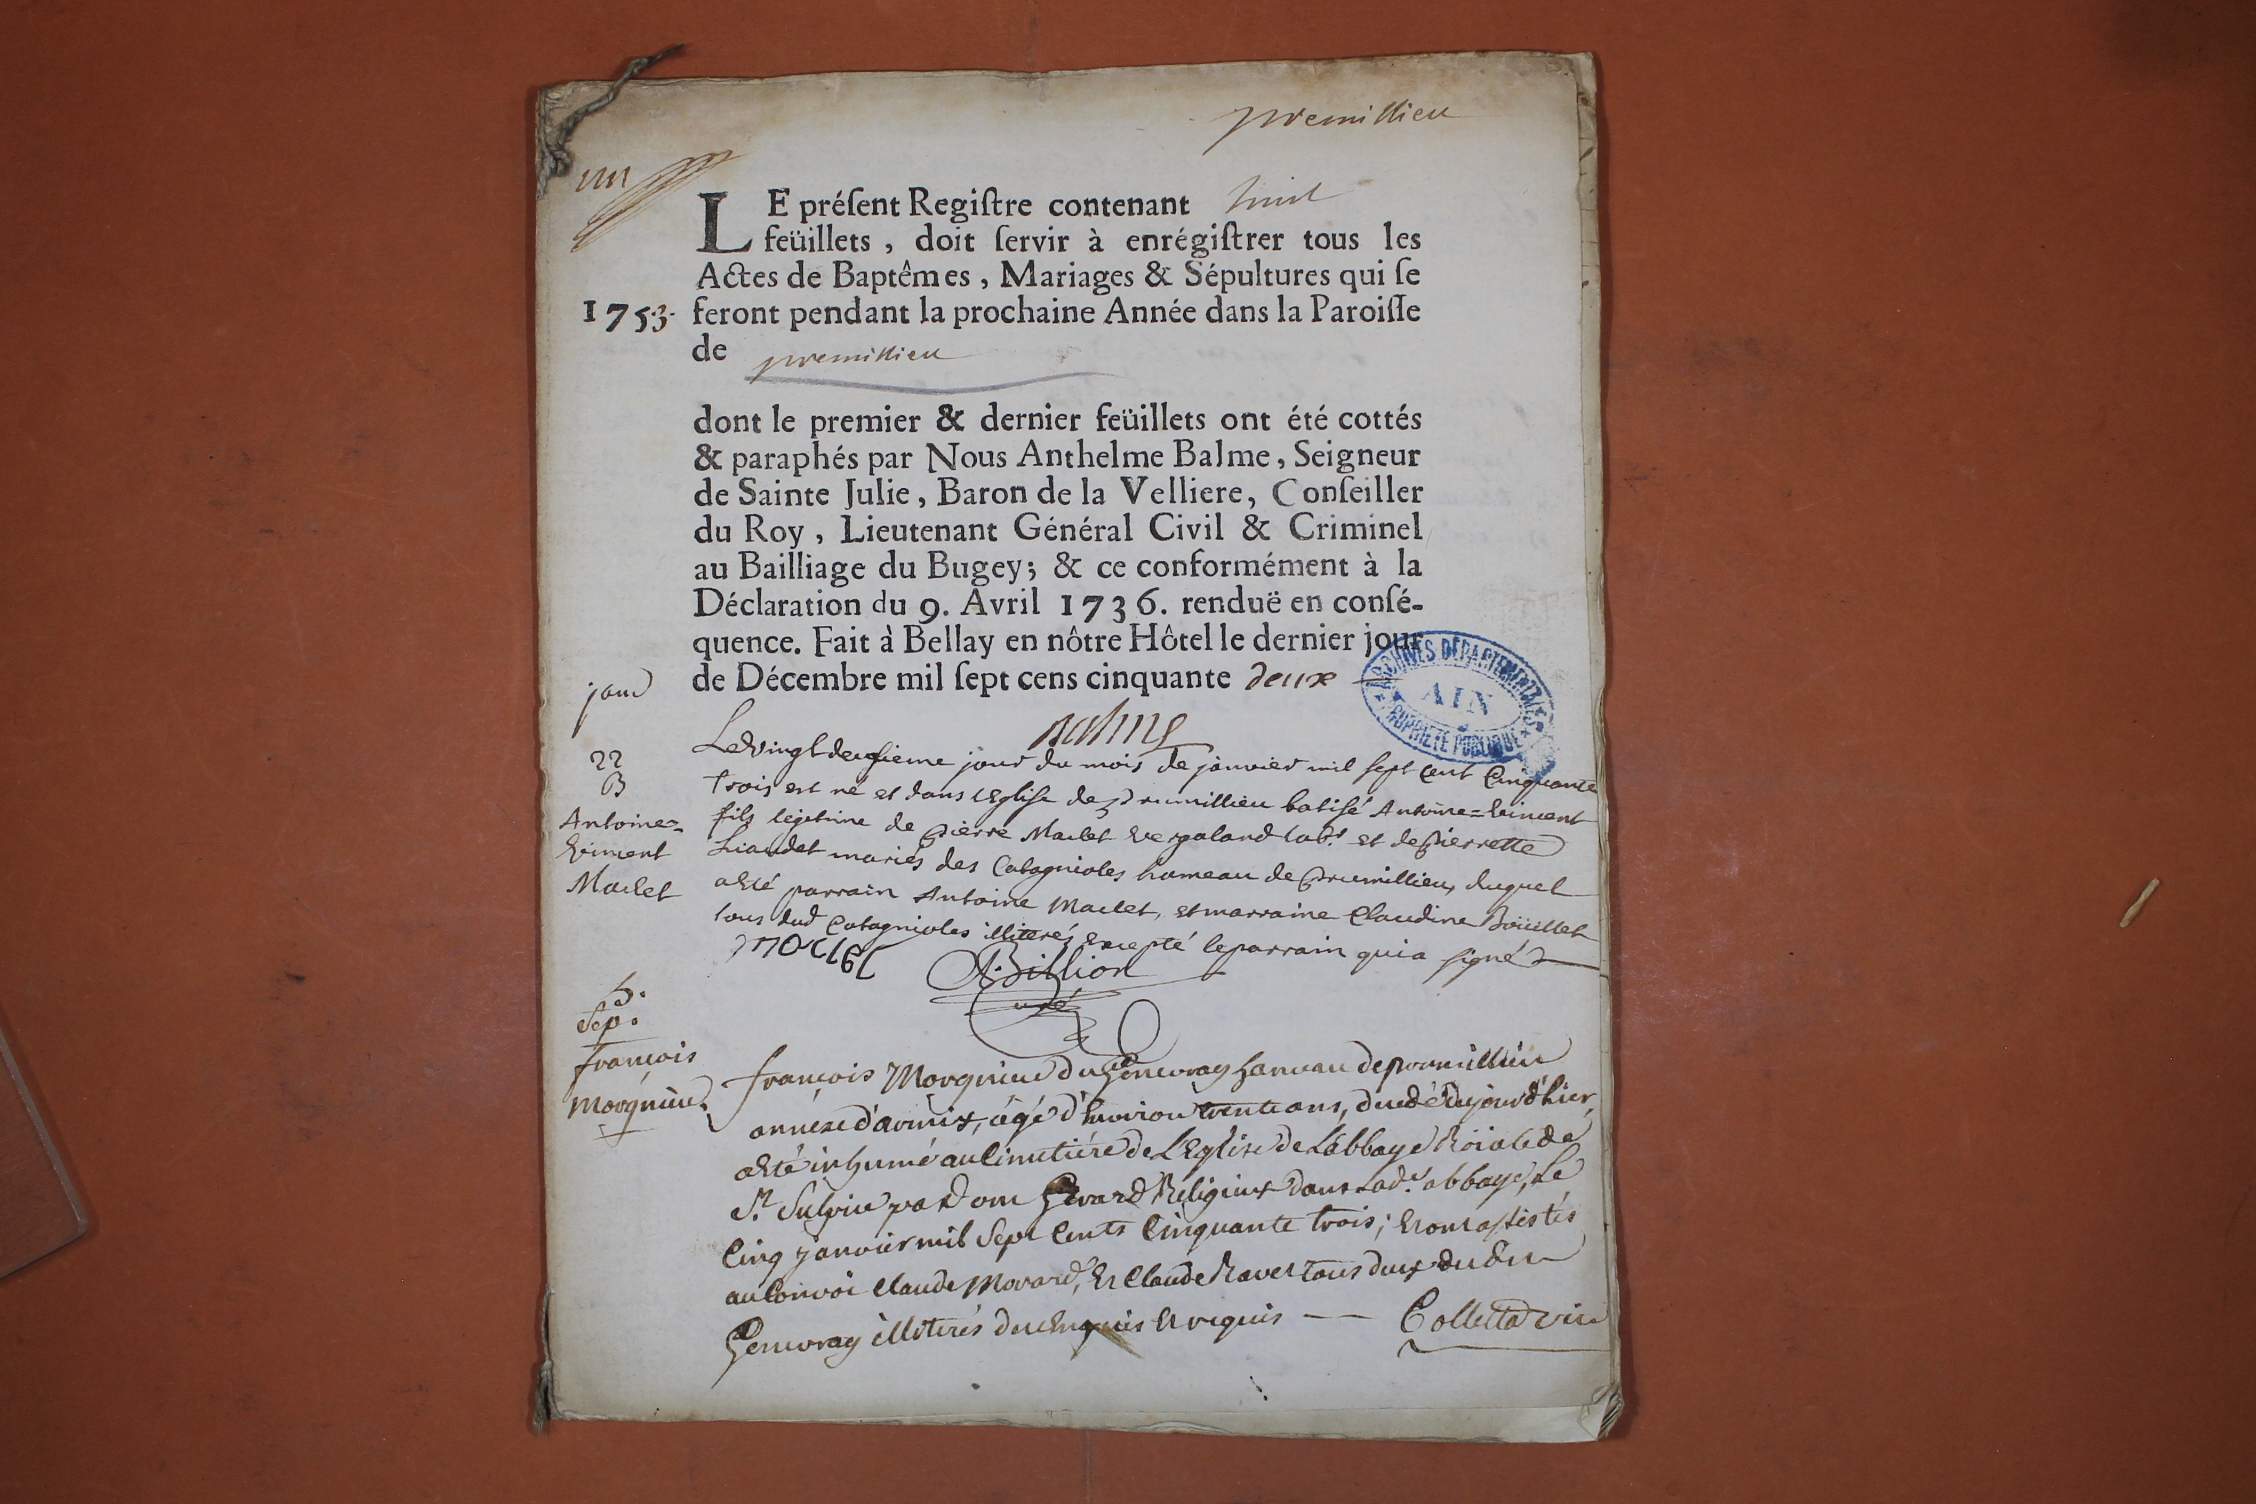 premillieu
un
LE préſent Regiſtre contenant huit
feüillets , doit ſervir à enrégiſtrer tous les
Actes de Baptêmes , Mariages & Sépultures qui ſe
1753. feront pendant la prochaine Année dans la Paroiſſe
de premillieu
dont le premier & dernier feüillets ont été cottés
& paraphés par Nous Anthelme Balme, Seigneur
de Sainte Julie, Baron de la Velliere, Conſeiller
du Roy , Lieutenant Général Civil & Criminel
au Bailliage du Bugey; & ce conformément à la
Déclaration du 9. Avril 1736. renduë en conſé-
quence. Fait à Bellay en nôtre Hôtel le dernier jour
de Décembre mil ſept cens cinquante deux
Balme
ARCHIVES DÉPARTEMENTALES
AIN
PROPRIÉTÉ PUBLIQUE
janv
22
B
Antoine=
Vincent
Maclet
Le vingt deusieme jour du mois de janvier mil sept cent Cinquante
trois est né et dans l'Eglise de Prumillieu batisé Antoine=Vincent
fils légitime de Pierre Maclet Vergaland labr. et de Pierrette
Liaudet mariés des Catagnioles hameau de Prumillieu, duquel
a été parrain Antoine Maclet, et marraine Claudine Boüillet
tous dud Catagnioles illiterés excepté le parrain qui a signé
maclet
A. Billion
curé
5.
Sep.
françois
Morgnieu
françois Morgnieu du Genevray hameau de premillieu
annexe d'arvieres, agé d'Environ trente ans, decedé du jour d'hier,
a été inhumé au Cimetiére de L'Eglise de L'abbaye Roiale de
St. Sulpice par Dom Religieux dans lade. abbaye, Le
Cinq janvier mil Sept Cents Cinquante trois; et ont assistés
au Convoi Claude Morard, Et Claude Ravet tous deux dudit
Genevray illiterés de ce enquis et requis — Colletta vic